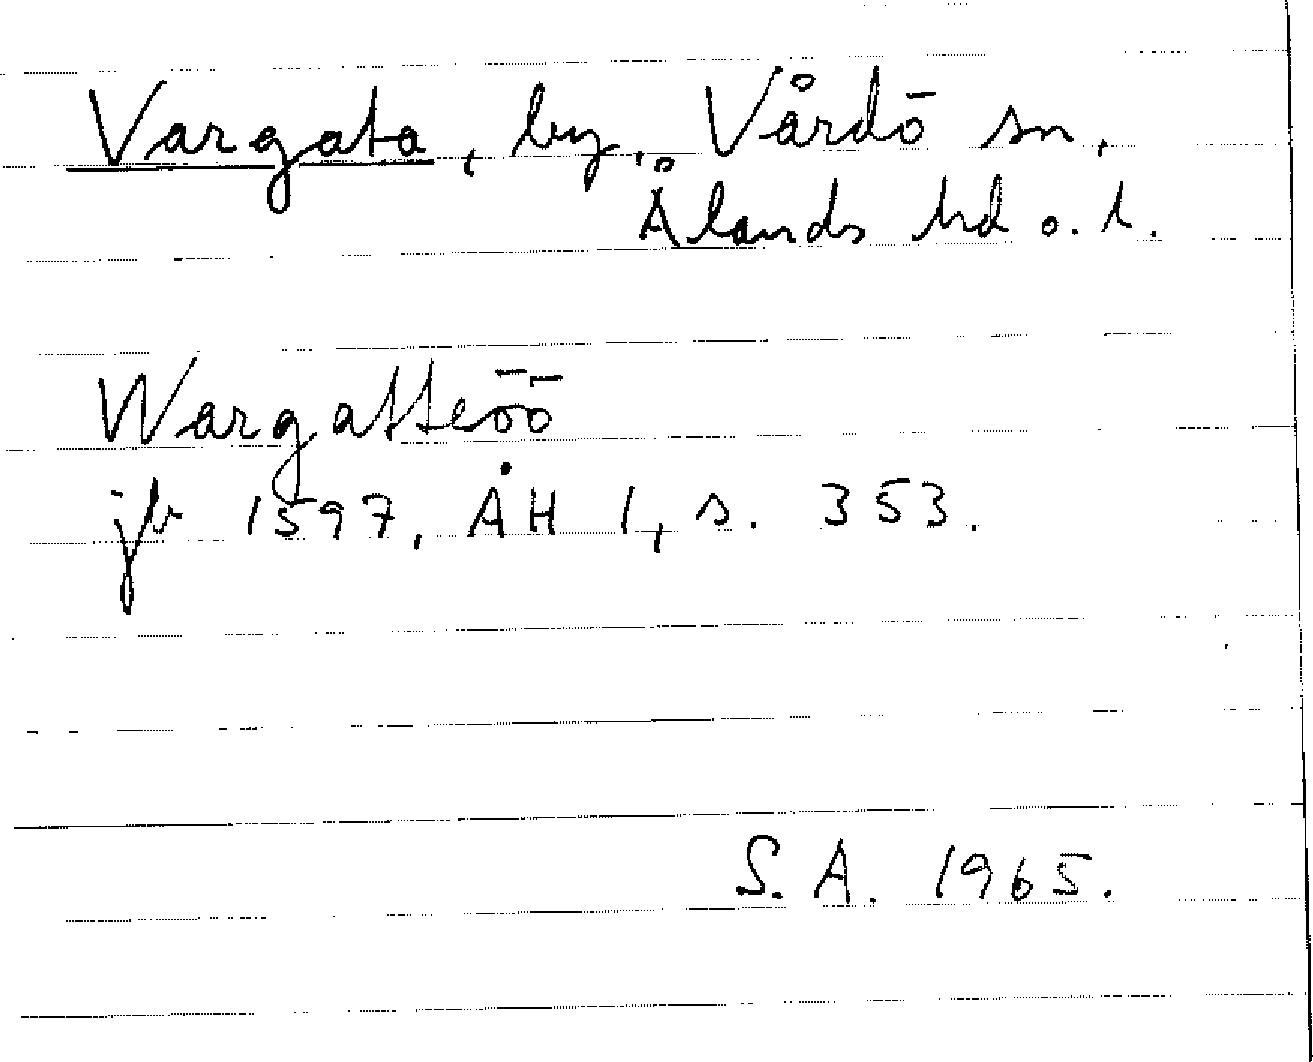 Vargata, by, Vårdö sn,
Ålands hd o. l.
Wargatteöö
jb 1597, ÅH I, s. 353.
S. A. 1965.